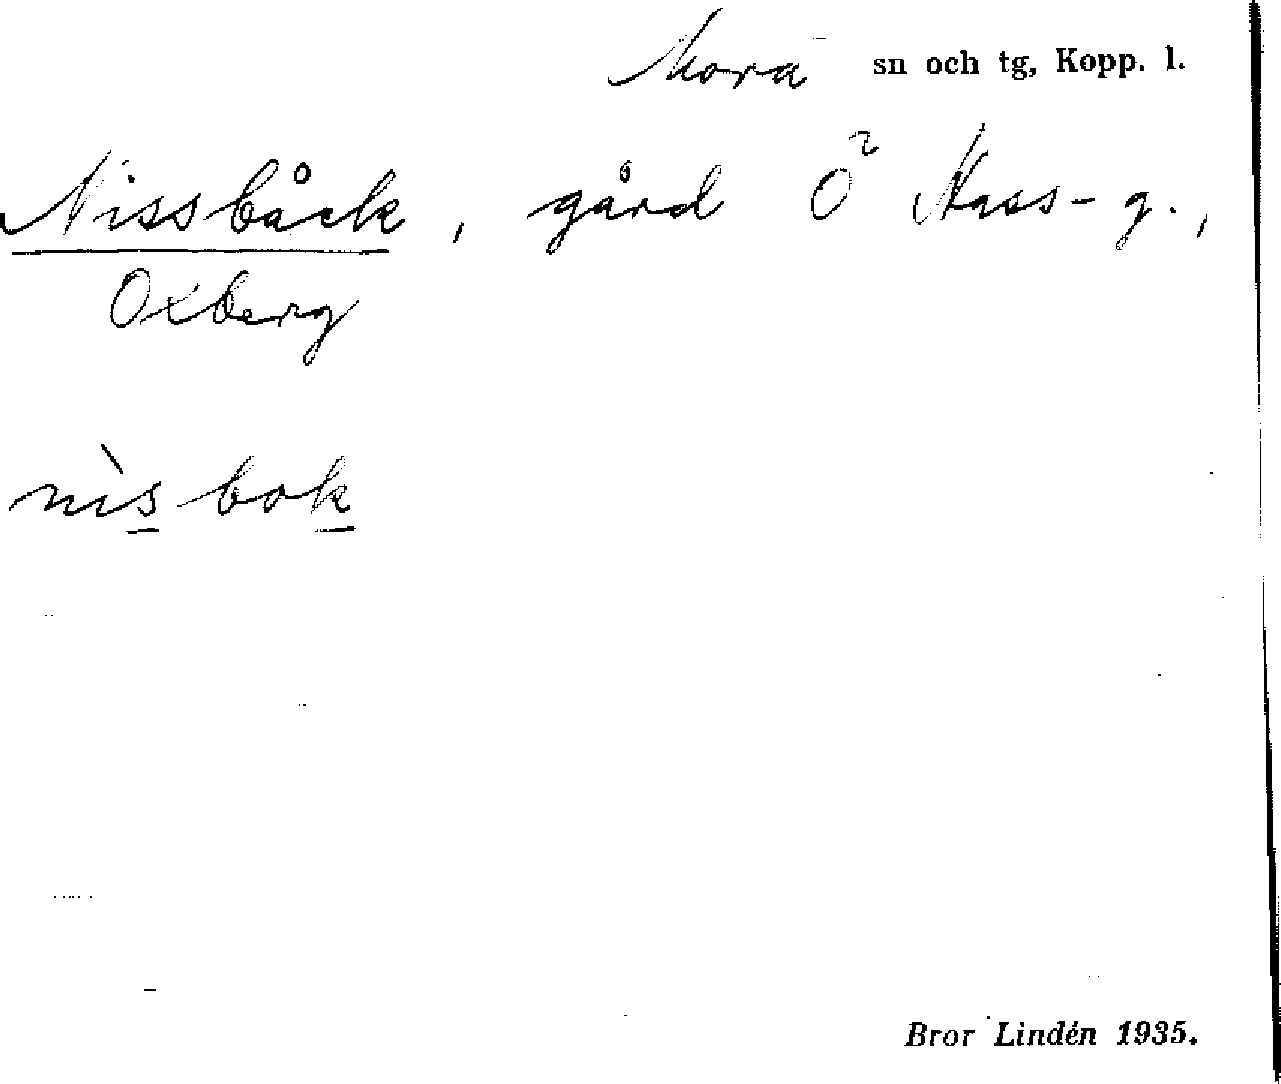 Mora sn och tg, Kopp. l.
Nissbåck, gård Ö Mass-g.,
Oxberg
nìs bok
Bror Lindén 1935.